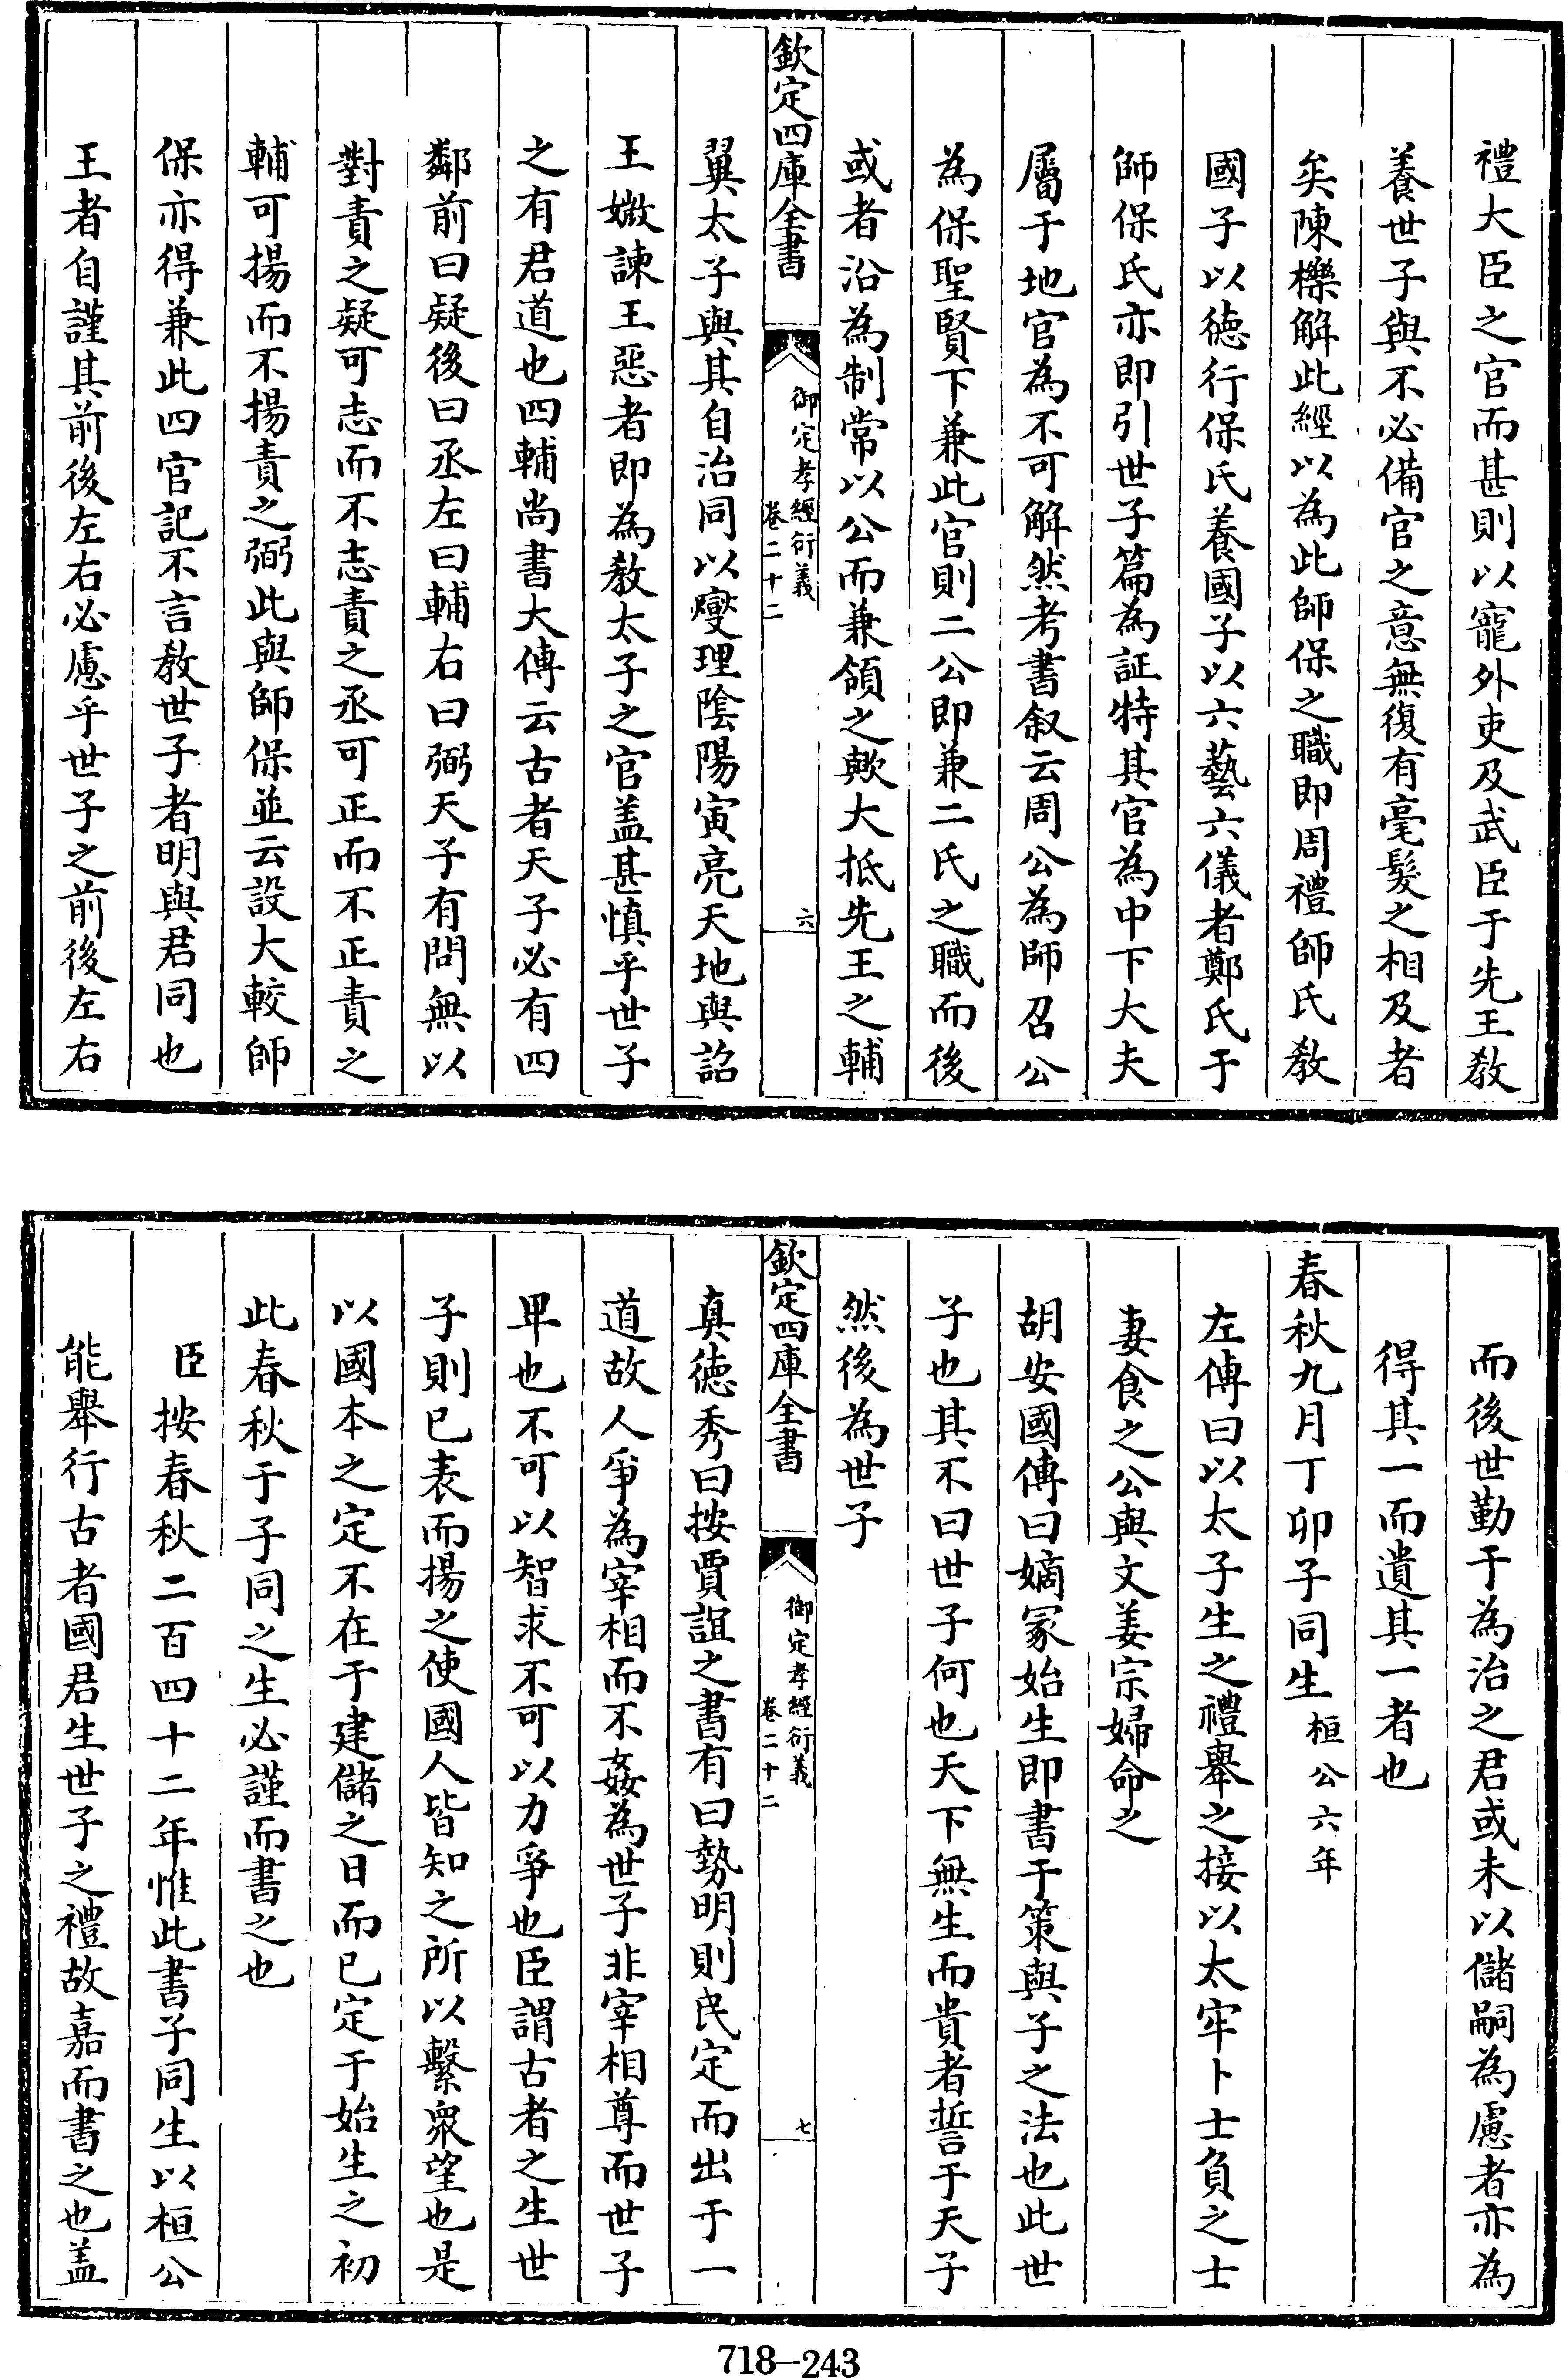 禮大臣之官而甚則以寵外吏及武臣于先王教
養世子與不必備官之意無復有毫髮之相及者
矣陳櫟解此經以為此師保之職即周禮師氏教
國子以徳行保氏養國子以六藝六儀者鄭氏于
師保氏亦即引世子篇為証特其官為中下大夫
屬于地官為不可解然考書叙云周公為師召公
為保聖賢下兼此官則二公即兼二氏之職而後
或者沿為制常以公而兼領之歟大抵先王之輔
欽定四庫全書
御定孝經衍義
卷二十二
六
翼太子與其自治同以燮理陰陽寅亮天地與詔
王媺諫王惡者即為教太子之官盖甚慎乎世子
之有君道也四輔尚書大傳云古者天子必有四
鄰前曰疑後曰丞左曰輔右曰弼天子有問無以
對責之疑可志而不志責之丞可正而不正責之
輔可揚而不揚責之弼此與師保並云設大較師
保亦得兼此四官記不言教世子者明與君同也
王者自謹其前後左右必慮乎世子之前後左右
而後世勤于為治之君或未以儲嗣為慮者亦為
得其一而遺其一者也
春秋九月丁卯子同生桓公六年
左傳曰以太子生之禮舉之接以太牢卜士負之士
妻食之公與文姜宗婦命之
胡安國傳曰嫡冢始生即書于策與子之法也此世
子也其不曰世子何也天下無生而貴者誓于天子
然後為世子
欽定四庫全書
御定孝經衍義
卷二十二
七
真徳秀曰按賈誼之書有曰勢明則民定而出于一
道故人爭為宰相而不姦為世子非宰相尊而世子
卑也不可以智求不可以力爭也臣謂古者之生世
子則已表而揚之使國人皆知之所以繫衆望也是
以國本之定不在于建儲之日而已定于始生之初
此春秋于子同之生必謹而書之也
臣按春秋二百四十二年惟此書子同生以桓公
能舉行古者國君生世子之禮故嘉而書之也盖
718-243